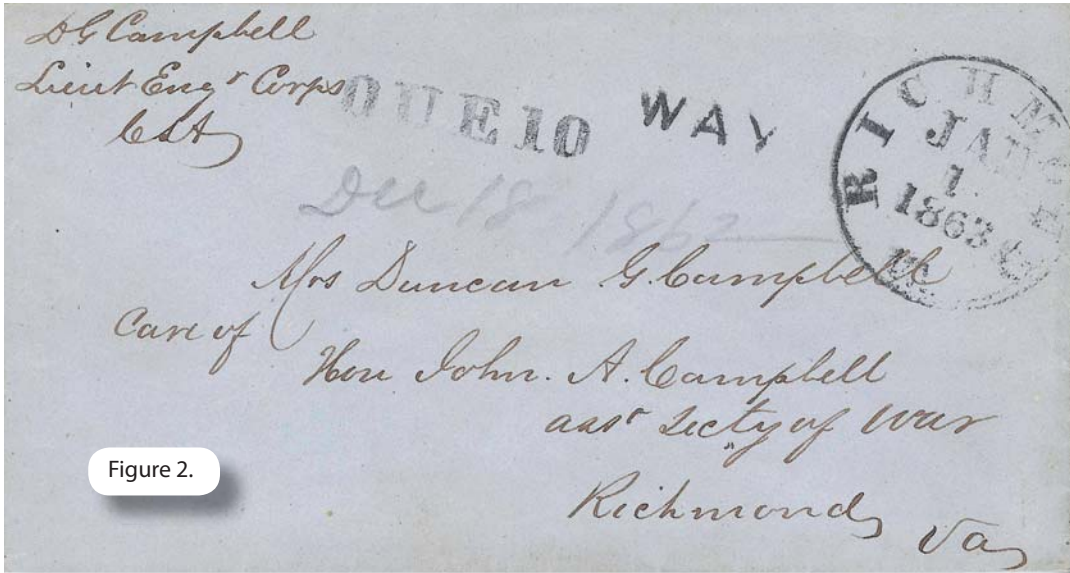 D G Campbell
Lieut Engr Corps
CSA
DUE 10
WAY
RICHMOND
JAN
1
1863
VA.
Dec 18 1862
Mrs Duncan G. Campbell
Care of
Hon John. A. Campbell
asst Secty of War
Richmond
Va
Figure 2.